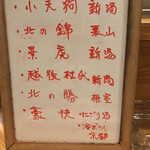 ・小天狗 新潟
・北の錦 栗山
・景虎 新潟
・越後杜氏 新潟
・北の勝 根室
・豪快
京都